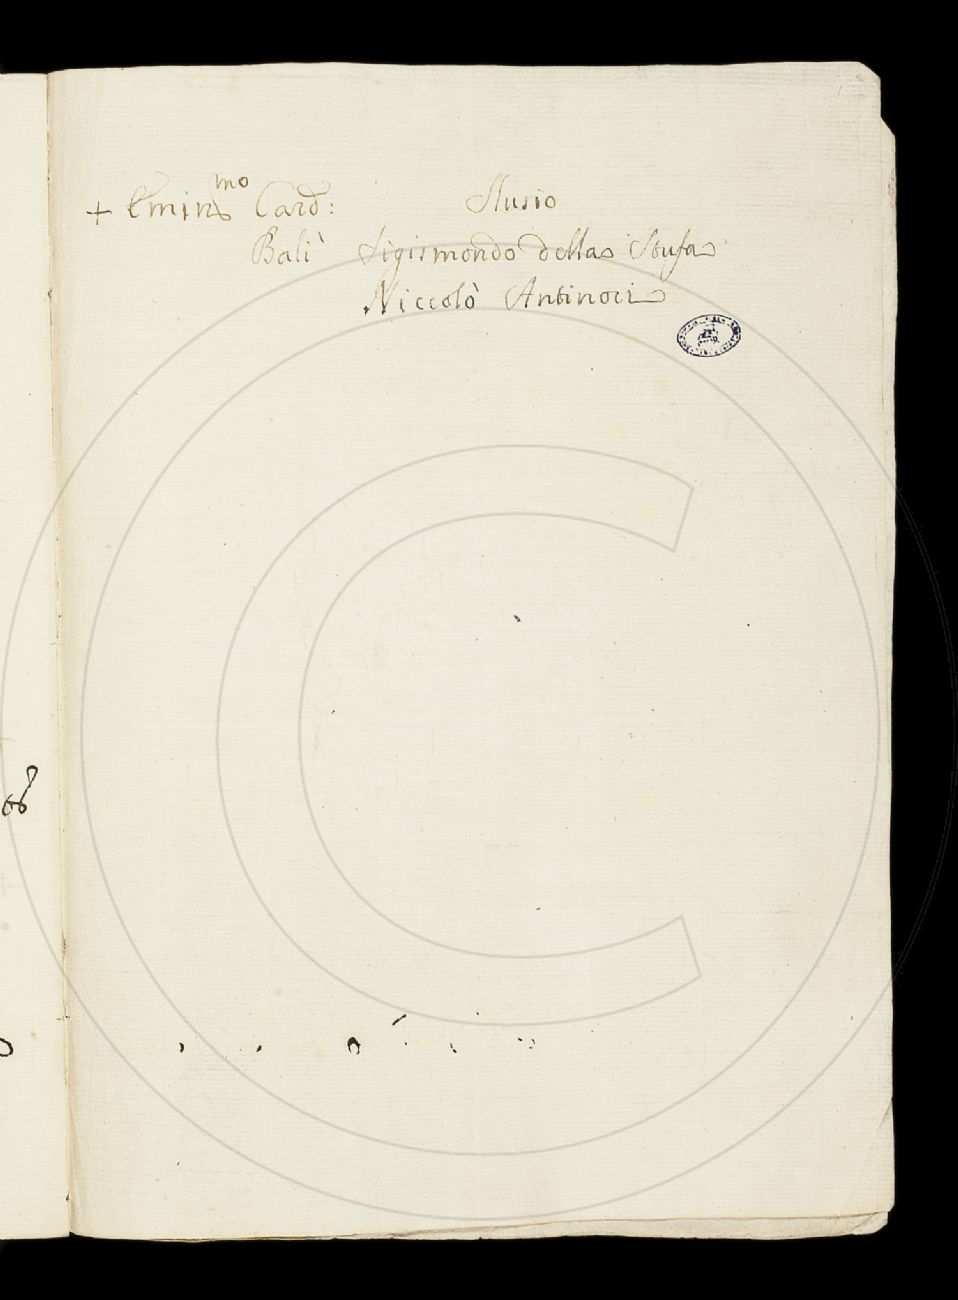 + Emin.mo Card: Slusio
Balì Sigismondo della Stufa
Niccolò Antinori